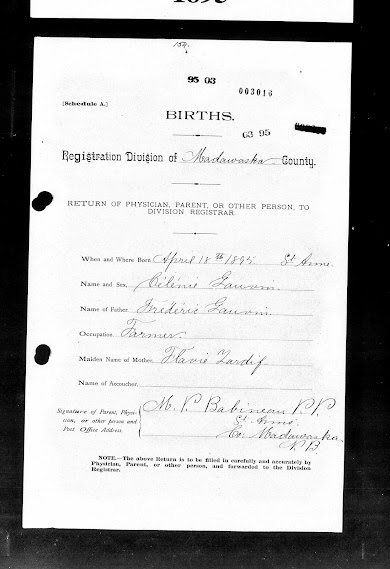 1895
154.
95 03
003016
[Schedule A.]
BIRTHS.
03 95
Registration Division of Madawaska County.
RETURN OF PHYSICIAN, PARENT, OR OTHER PERSON, TO
DIVISION REGISTRAR.
When and Where Born April 18th 1895. St Anns.
Name and Sex, Gauvin
Name of Father, Frédéric Gauvin
Occupation, Farmer
Maiden Name of Mother, Flavie Tardif
Name of Accoucher,
Signature of Parent, Physi-
cian, or other person and
Post Office Address.
M. P. Babineau P. P.
St. Anns
Co. Madawaska
N. B.
NOTE.—The above Return is to be filled in carefully and accurately by
Physician, Parent, or other person, and forwarded to the Division
Registrar.